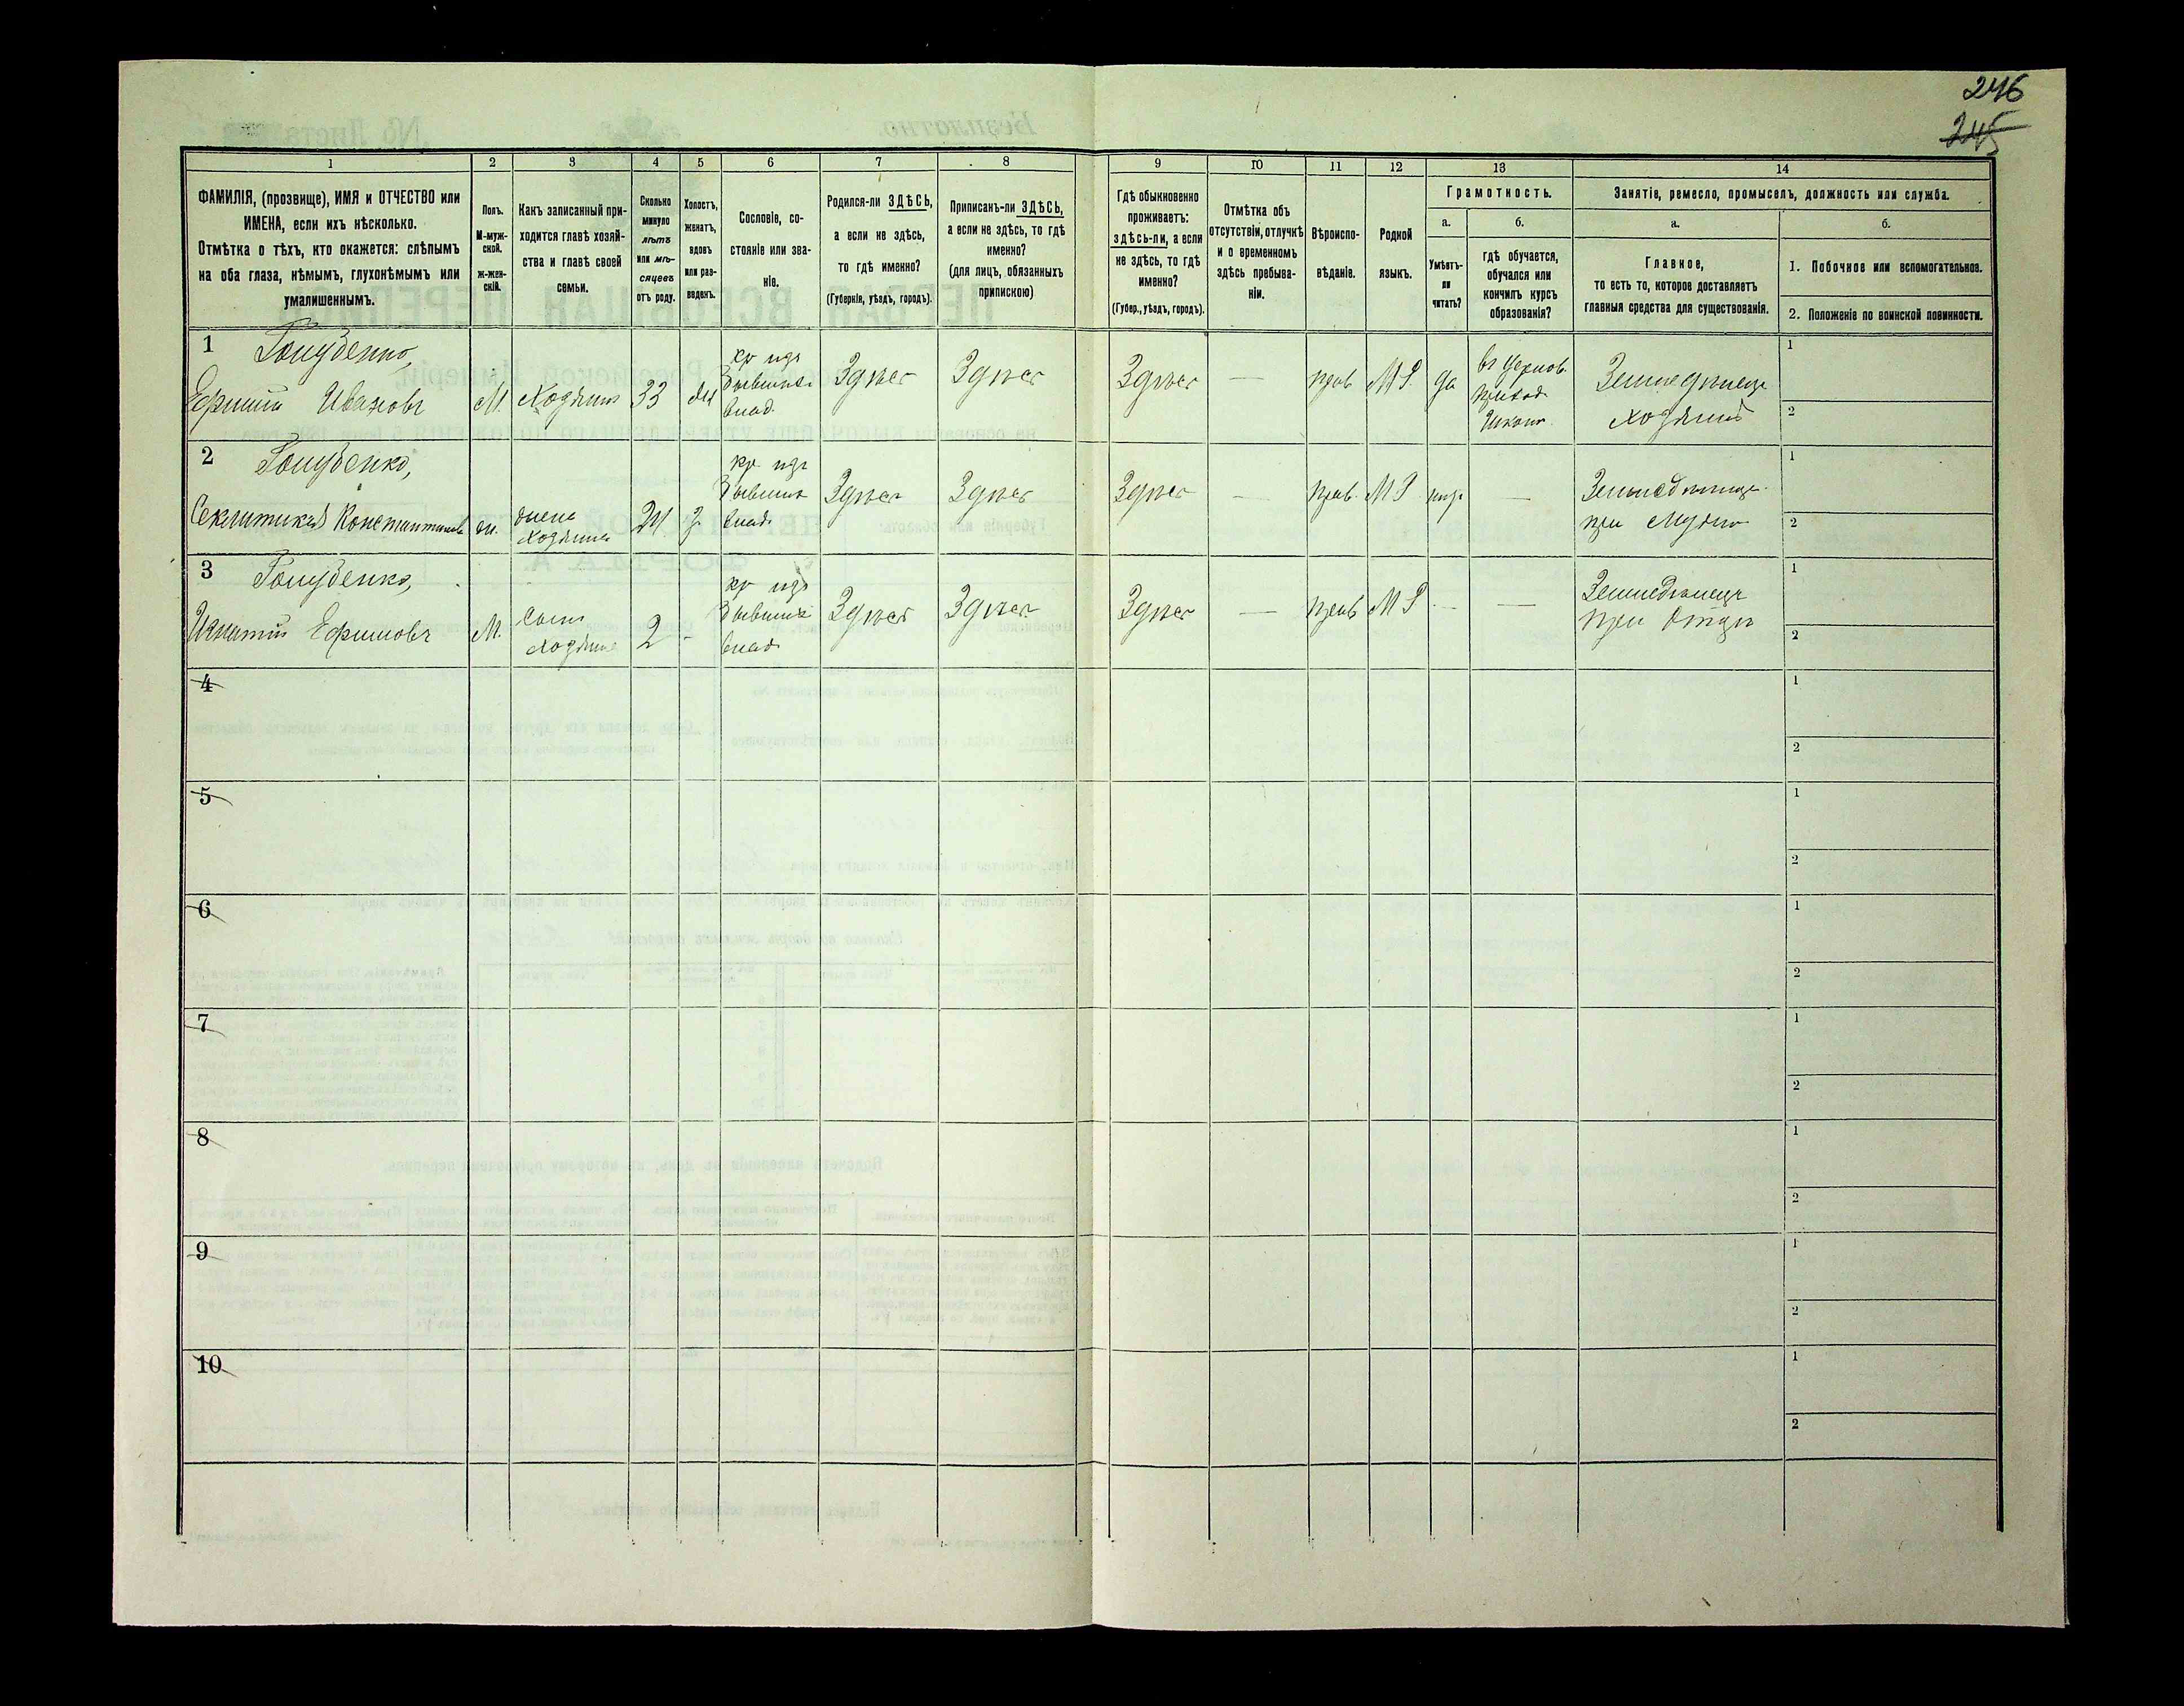 246
245
1
2
3
4
5
6
7
8
ФАМИЛІЯ, (прозвище), ИМЯ и ОТЧЕСТВО или
ИМЕНА, если ихъ нѣсколько.
Отмѣтка о тѣхъ, кто окажется: слѣпымъ
на оба глаза, нѣмымъ, глухонѣмымъ или
умалишеннымъ.
Полъ.
М-муж-
ской.
ж-жен-
скій.
Какъ записанный при-
ходится главѣ хозяй-
ства и главѣ своей
семьи.
Сколько
минуло
лѣтъ
или мѣ-
сяцевъ
отъ роду.
Холостъ,
женатъ,
вдовъ
или раз-
веденъ.
Сословіе, со-
стояніе или зва-
ніе.
Родился-ли ЗДѢСЬ,
а если не здѣсь,
то гдѣ именно?
(Губернія, уѣздъ, городъ).
Приписанъ-ли ЗДѢСЬ,
а если не здѣсь, то гдѣ
именно?
(для лицъ, обязанныхъ
припискою)
9
10
11
12
13
14
Гдѣ обыкновенно
проживаетъ:
здѣсь-ли, а если
не здѣсь, то гдѣ
именно?
(Губер., уѣздъ, городъ).
Отмѣтка объ
отсутствіи, отлучкѣ
и о временномъ
здѣсь пребыва-
ніи.
Вѣроиспо-
вѣданіе.
Родной
языкъ.
Грамотность.
а.
б.
Умѣетъ-
ли
читать?
гдѣ обучается,
обучался или
кончилъ курсъ
образованія?
Занятіе, ремесло, промыселъ, должность или служба.
а.
б.
Главное,
то есть то, которое доставляетъ
главныя средства для существованія.
1. Побочное или вспомогательное.
2. Положеніе по воинской повинности.
1 Голубенко,
Ефимій Ивановъ
М.
Хозяинъ
33
жен
кр изъ
бывших
влад.
Здѣсь
Здѣсь
Здѣсь
—
прав
М Р.
да
въ церков
приход
школѣ
Земледѣлецъ
хозяинъ
1
2
2 Голубенко,
Константинова
ж.
жена
хозяина
24
з
кр изъ
бывших
влад
Здѣсь
Здѣсь
Здѣсь
—
прав.
М Р
—
при мужѣ
1
2
3 Голубенко,
Игнатій Ефимовъ
М.
Сынъ
хозяина
2
-
кр изъ
бывших
влад
Здѣсь
Здѣсь
Здѣсь
—
прав
М Р
—
—
Земледѣлецъ
при отцѣ
1
2
4
1
2
5
1
2
6
1
2
7
1
2
8
1
2
9
1
2
10
1
2